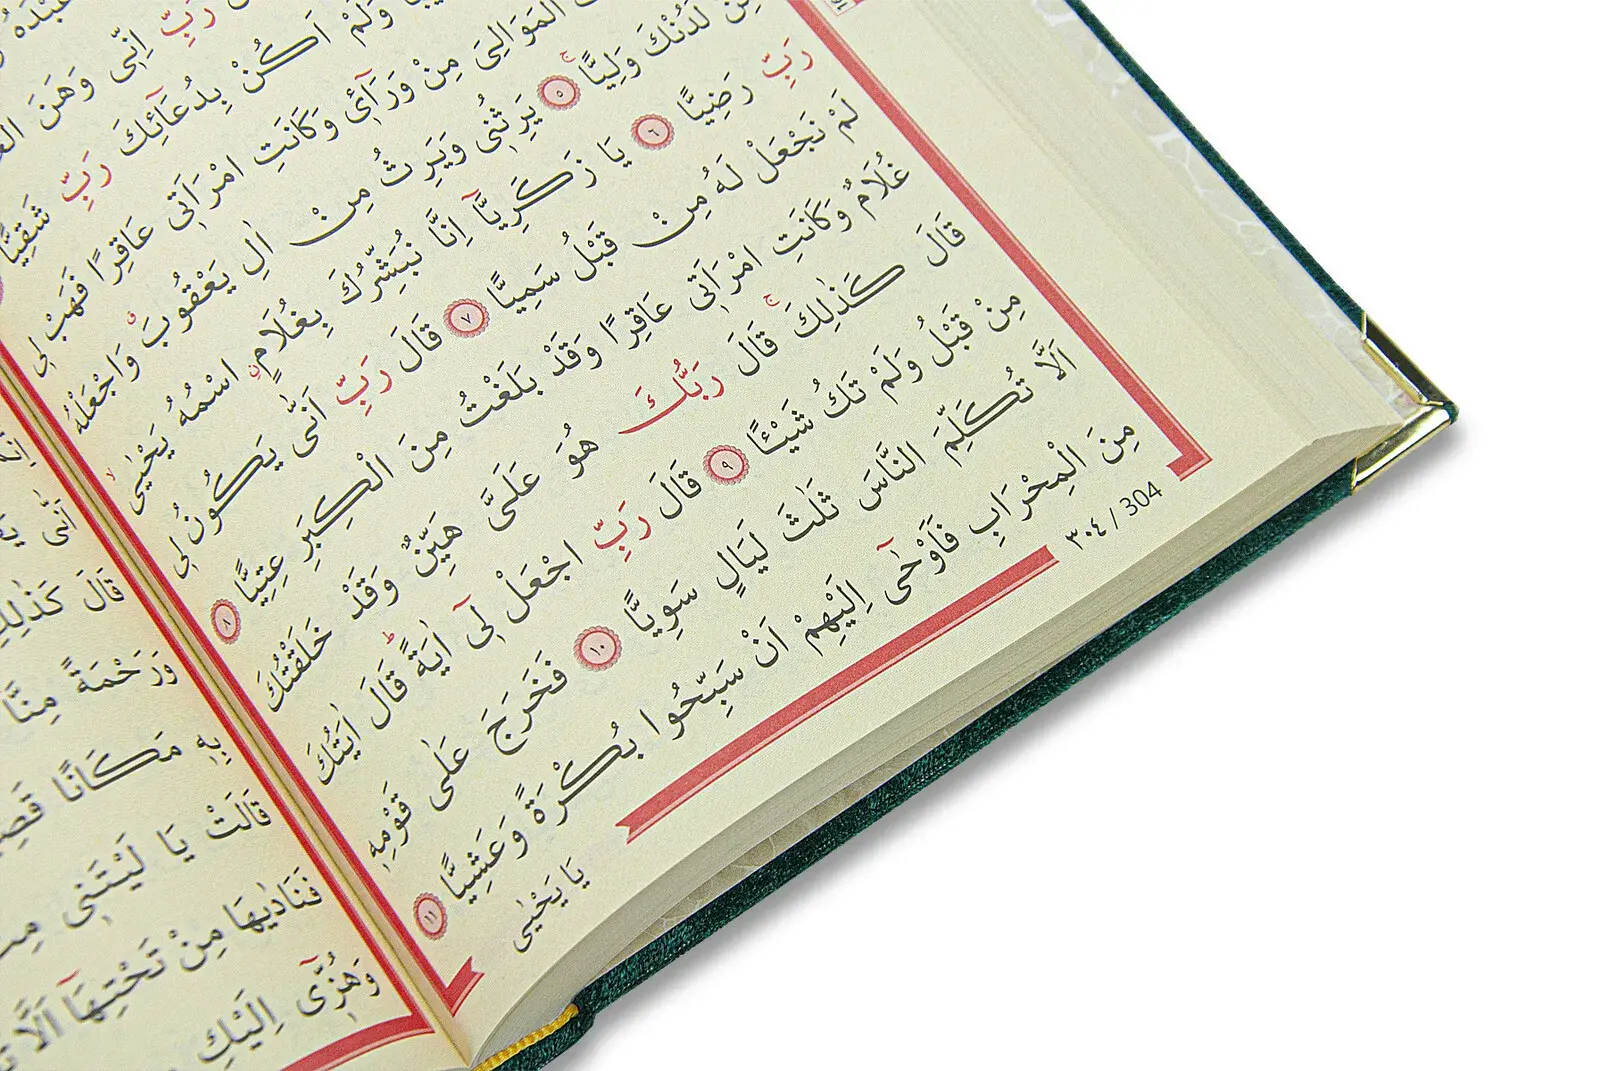 رَبِّ اِنّٖى وَهَنَ
وَلَمْ اَكُنْ بِدُعَٓائِكَ رَبِّ شَقِيًّا
الْمَوَالِىَ مِنْ وَرَٓائٖى وَكَانَتِ امْرَاَتٖى عَاقِرًا فَهَبْ لٖى
مِنْ لَدُنْكَ وَلِيًّاۚ ٥ يَرِثُنٖى وَيَرِثُ مِنْ اٰلِ يَعْقُوبَۗ وَاجْعَلْهُ
رَبِّ رَضِيًّا ٦ يَا زَكَرِيَّٓا اِنَّا نُبَشِّرُكَ بِغُلَامٍ اسْمُهُ يَحْيٰىۙ
لَمْ نَجْعَلْ لَهُ مِنْ قَبْلُ سَمِيًّا ٧ قَالَ رَبِّ اَنّٰى يَكُونُ لٖى
غُلَامٌ وَكَانَتِ امْرَاَتٖى عَاقِرًا وَقَدْ بَلَغْتُ مِنَ الْكِبَرِ عِتِيًّا ٨
قَالَ كَذٰلِكَۚ قَالَ رَبُّكَ هُوَ عَلَىَّ هَيِّنٌ وَقَدْ خَلَقْتُكَ
مِنْ قَبْلُ وَلَمْ تَكُ شَيْـًٔا ٩ قَالَ رَبِّ اجْعَلْ لٖٓى اٰيَةًؕ قَالَ اٰيَتُكَ
اَلَّا تُكَلِّمَ النَّاسَ ثَلٰثَ لَيَالٍ سَوِيًّا ١٠ فَخَرَجَ عَلٰى قَوْمِهٖ
مِنَ الْمِحْرَابِ فَاَوْحٰٓى اِلَيْهِمْ اَنْ سَبِّحُوا بُكْرَةً وَعَشِيًّا ١١
يَا يَحْيٰى
٣٠٤ / 304
اَنّٰى
قَالَ كَذٰلِكِ
وَرَحْمَةً مِنَّا
بِهٖ مَكَانًا
قَالَتْ يَا لَيْتَنٖى
فَنَادٰيهَا مِنْ تَحْتِهَٓا اَلَّا
وَهُزّٖٓى اِلَيْكِ